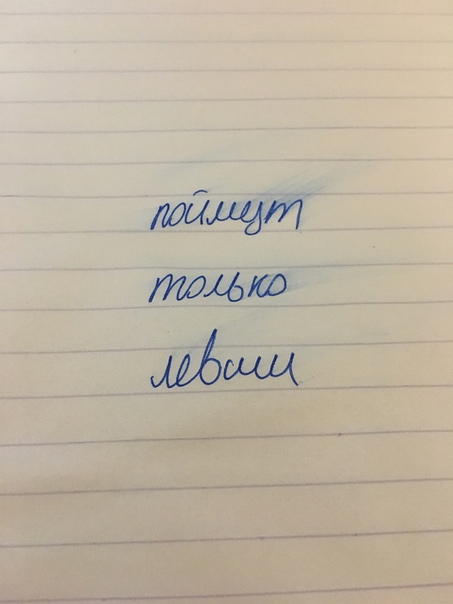 поймут
только
левши